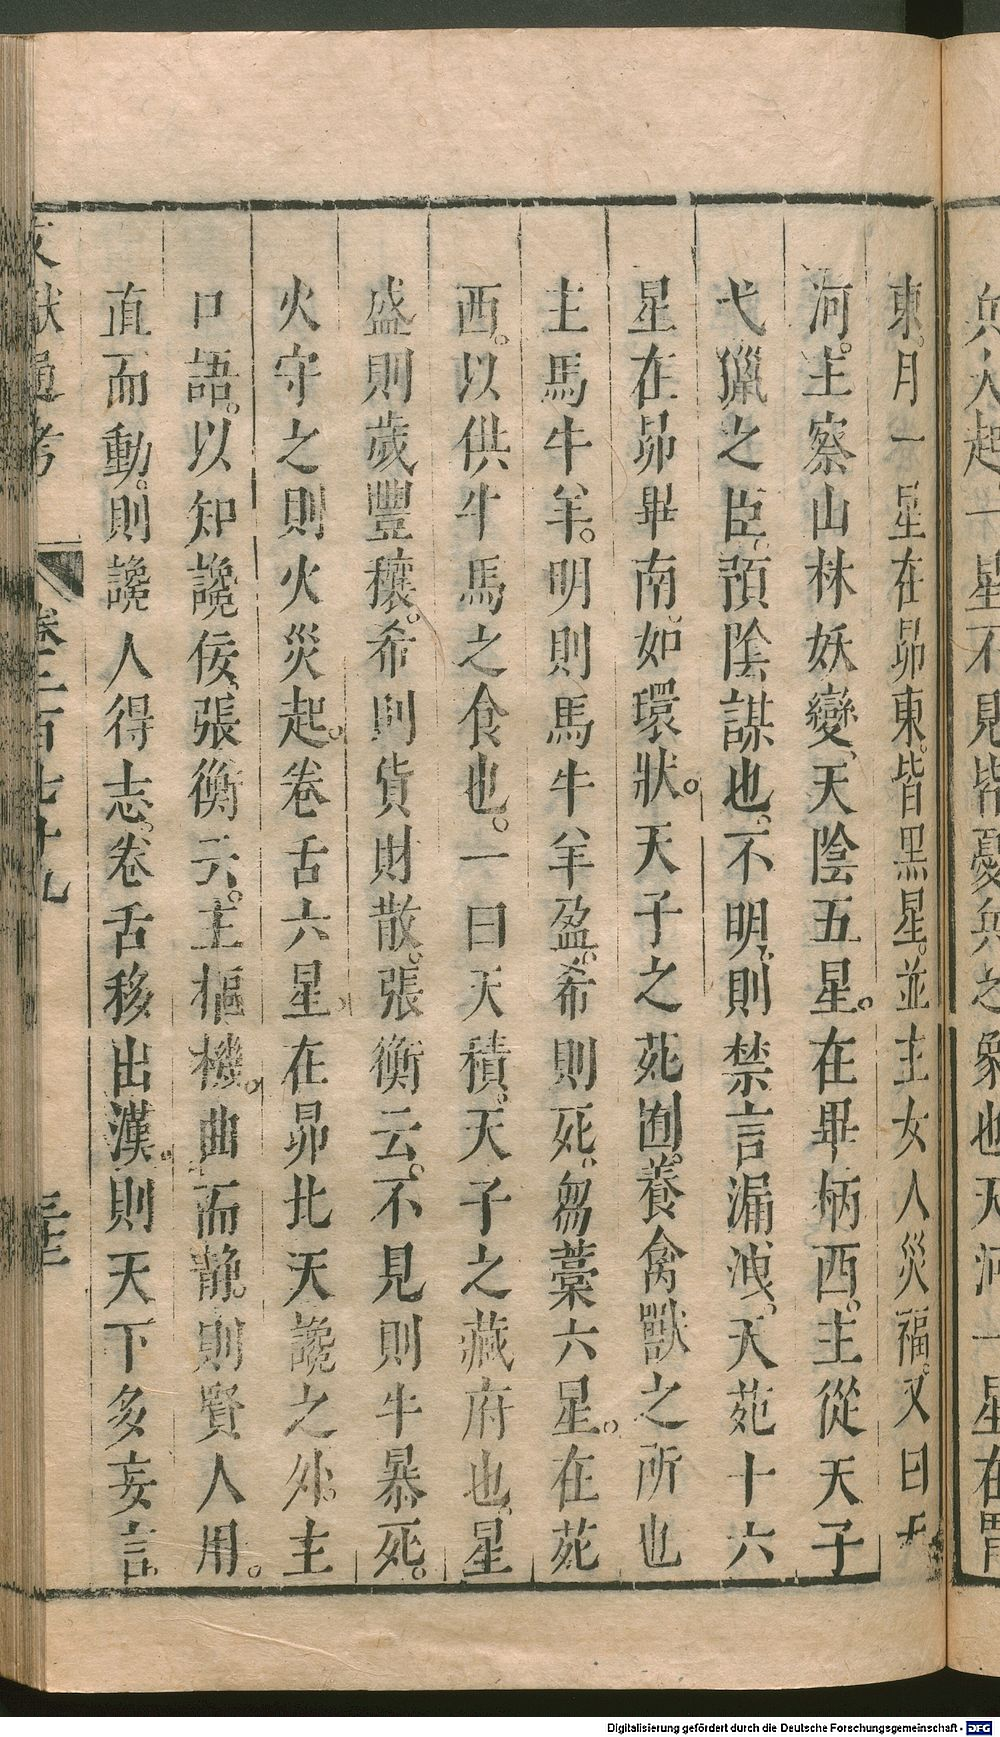 兵大起一星不見皆憂兵之象也天河一星在胃
東月一星在昴東皆黑星並主女人災福又曰天
河主察山林妖變天陰五星在畢柄西主從天子
弋獵之臣預陰謀也不明則禁言漏洩天苑十六
星在昴畢南如環狀天子之苑囿養禽獸之所也
主馬牛羊明則馬牛羊盈希則死芻藁六星在苑
西以供牛馬之食也一曰天積天子之藏府也星
盛則歲豐穰希則貨財散張衡云不見則牛暴死
火守之則火災起卷舌六星在昴北天讒之外主
口語以知讒佞張衡云主樞機曲而静則賢人用
直而動則讒人得志卷舌移出漢則天下多妄言
文獻通考 卷二百七十九
Digitalisierung gefördert durch die Deutsche Forschungsgemeinschaft - DFG